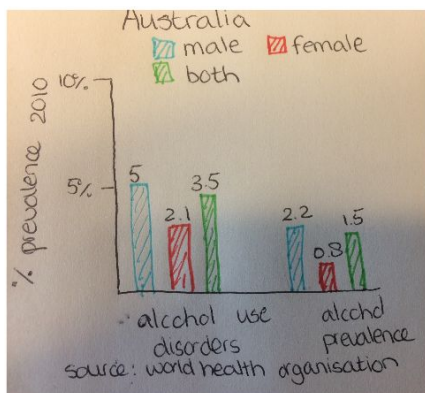 Australia
male female
both
% prevalence 2010
10%
5%
5
2.1
3.5
2.2
0.8
1.5
alcohol use
disorders
alcohol
prevalence
source: world health organisation